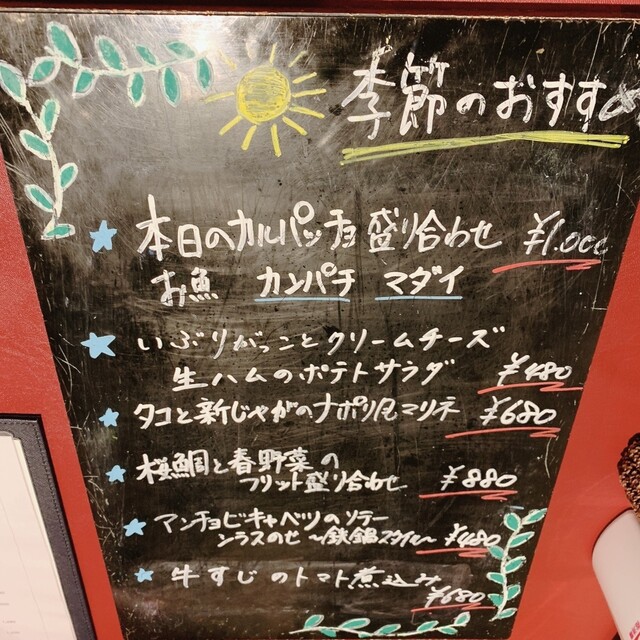 季節のおすすめ
本日のカルパッチョ盛り合わせ ¥1.000
お魚 カンパチ マダイ
いぶりがっことクリームチーズ
生ハムのポテトサラダ ¥480
タコと新じゃがのナポリ風マリネ ¥680
桜鯛と春野菜の
フリット盛り合わせ ¥880
アンチョビキャベツのソテー
シラスのせ ~鉄鍋スタイル~ ¥480
牛すじのトマト煮込み
¥680